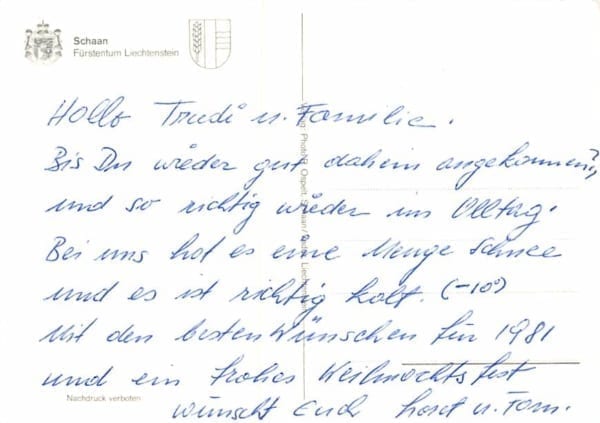 Schaan
Fürstentum Liechtenstein
Hallo Trudi u. Familie.
Bis Du wieder gut daheim angekommen?,
und so richtig wieder im Alltag.
Bei uns hat es eine Menge Schnee
und es ist richtig kalt. (-10°)
Mit den besten Wünschen für 1981
und ein frohes Weihnachtsfest
wünscht Euch Horst u. Fam.
Nachdruck verboten